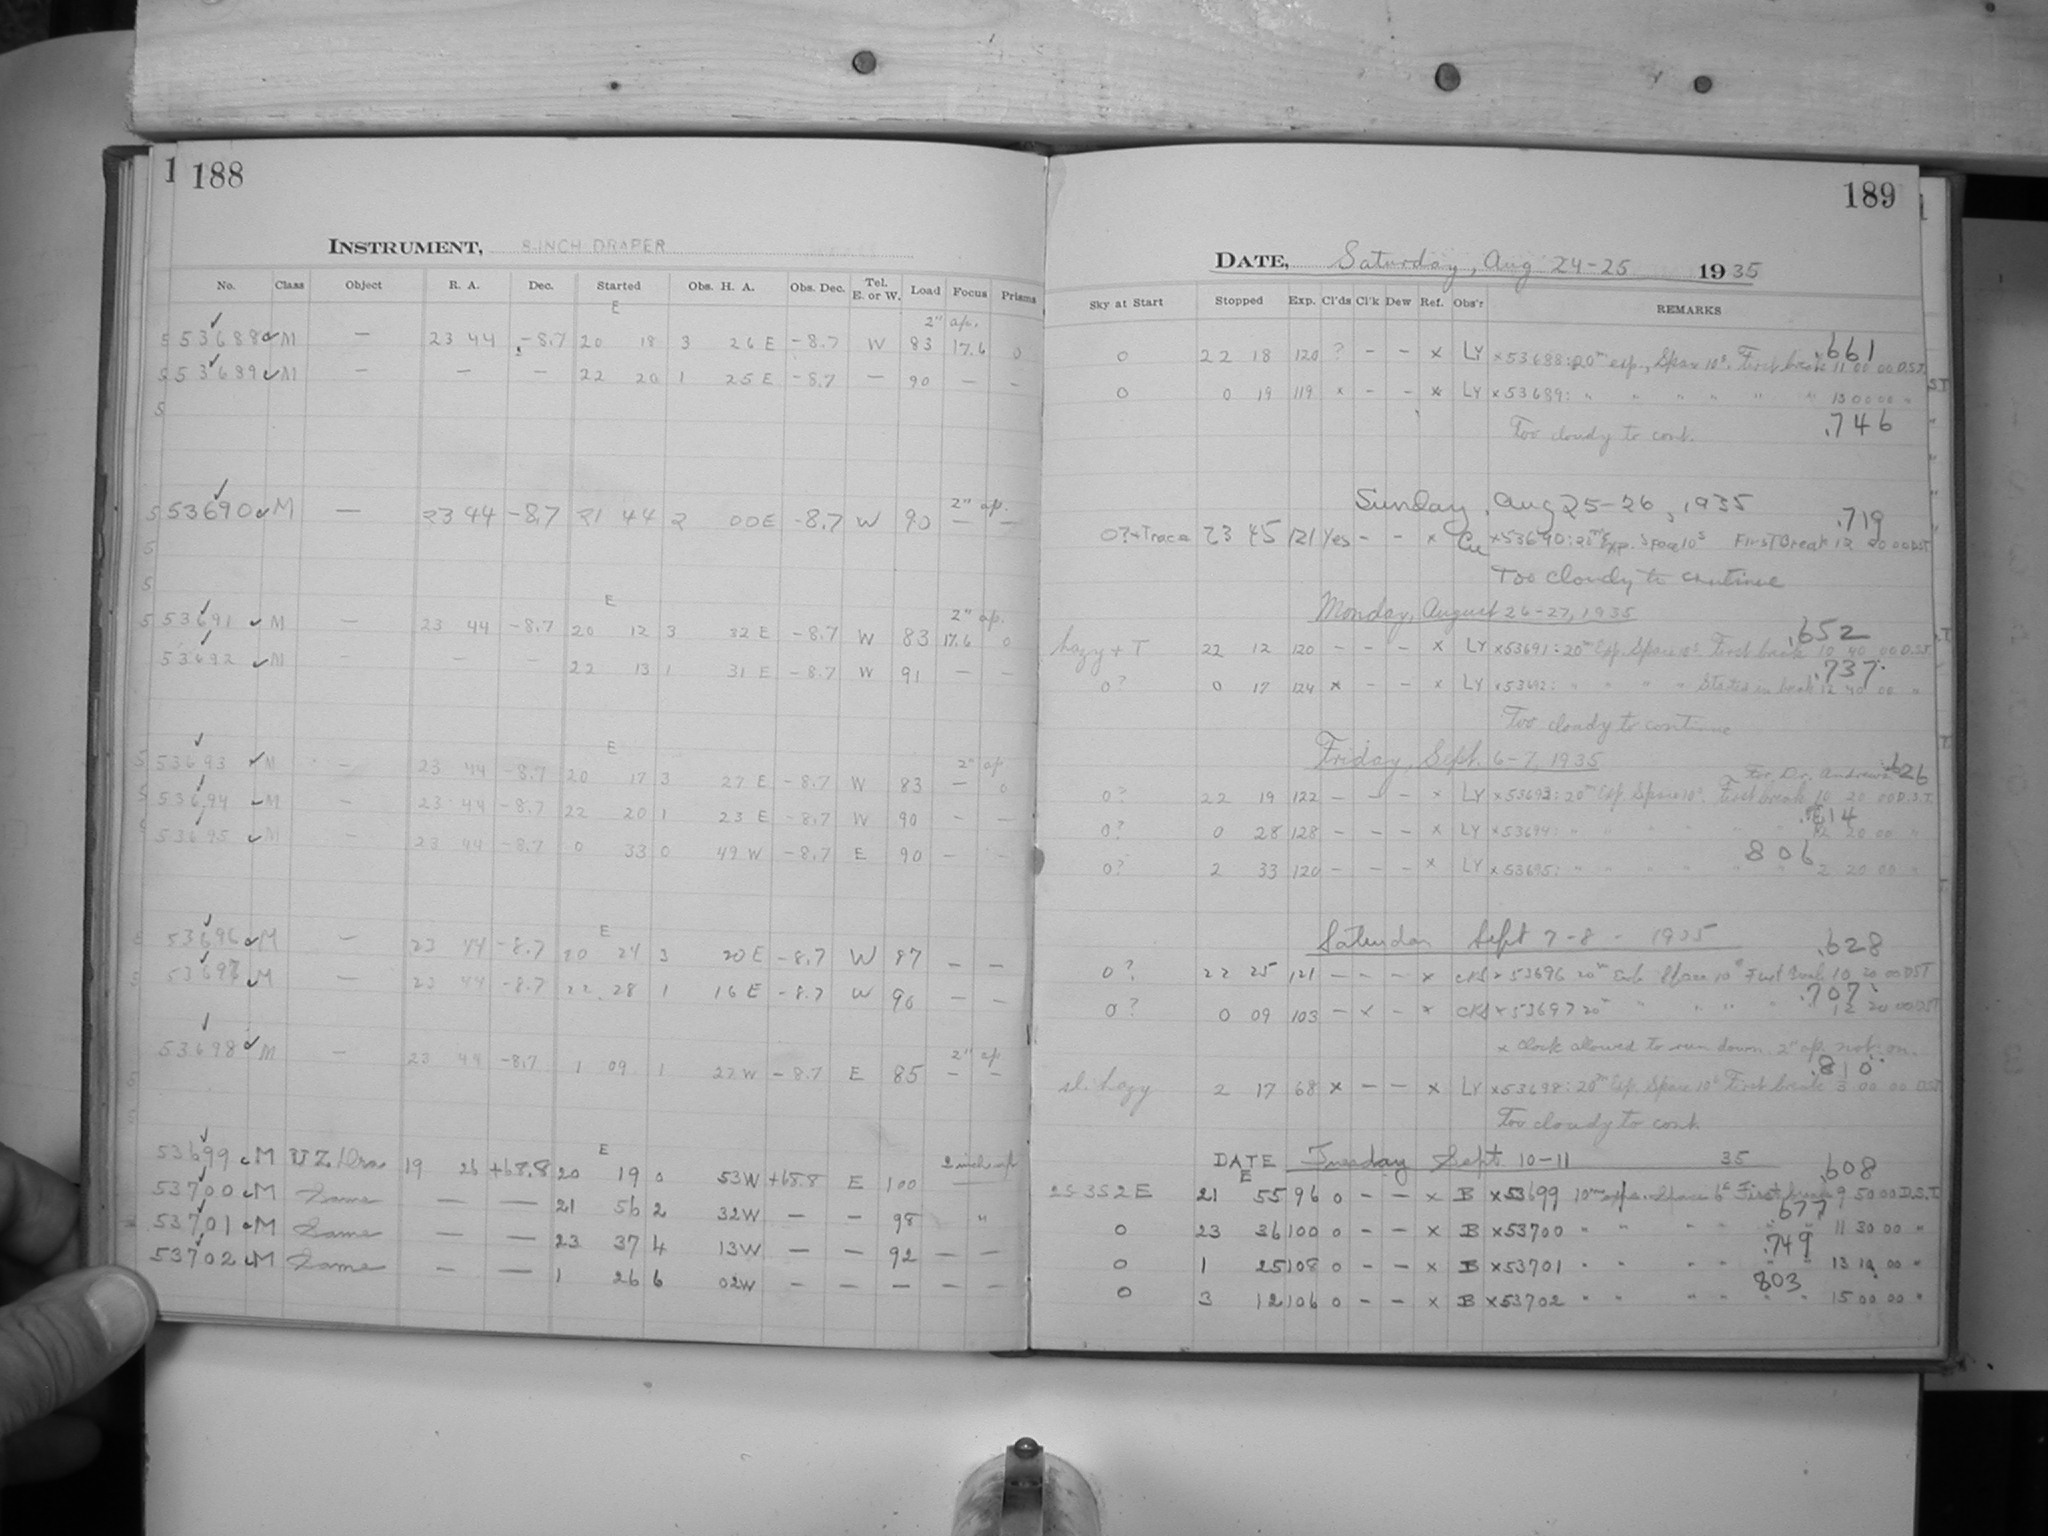 1 188
INSTRUMENT, 8 INCH DRAPER
No. Class Object R. A. Dec. Started Obs. H. A. Obs. Dec. Tel. E. or W. Load Focus Prisms
E 2" ap.
53688 M — 23 44 -8.7 20 18 3 26 E -8.7 W 83 17.6 0
53689 M — — — 22 20 1 25 E -8.7 — 90 — —
2" ap.
53690 M — 23 44 -8.7 21 44 2 00 E -8.7 W 90 — —
E 2" ap.
53691 M — 23 44 -8.7 20 12 3 32 E -8.7 W 83 17.6 0
53692 M — — — 22 13 1 31 E -8.7 W 91 — —
E 2" ap.
53693 M — 23 44 -8.7 20 17 3 27 E -8.7 W 83 — 0
53694 M — 23 44 -8.7 22 20 1 23 E -8.7 W 90 — —
53695 M — 23 44 -8.7 0 33 0 49 W -8.7 E 90 — —
E
53696 M — 23 44 -8.7 20 24 3 20 E -8.7 W 87 — —
53697 M — 23 44 -8.7 22 28 1 16 E -8.7 W 90 — —
2" ap
53698 M — 23 44 -8.7 1 09 1 27 W -8.7 E 85 — —
E
53699 M UZ Dra 19 26 +68.8 20 19 0 53W +68.8 E 100 2 inch ap
53700 M Same — — 21 56 2 32W — — 98 "
53701 M Same — — 23 37 4 13W — — 92 — —
53702 M Same — — 1 26 6 02W — — — — —
189
DATE, Saturday, Aug 24-25 1935
Sky at Start Stopped Exp. Cl'ds Cl'k Dew Ref. Obs'r REMARKS
.661
0 22 18 120 ? — — x LY x53688: 20m exp., Space 10s. First break 11 00 00 D.S.T.
0 0 19 119 x — — x LY x53689: " " " " " " 13 00 00 "
Too cloudy to cont. .746
Sunday, Aug 25-26, 1935
.719
0?+Trace 23 45 121 Yes — — x x53690: 20m Exp. Space 10s First Break 12 20 00 DST
Too cloudy to continue
Monday, August 26-27, 1935
.652
hazy + T 22 12 120 — — — x LY x53691: 20m Exp. Space 10s. First break 10 40 00 D.S.T.
.737
0? 0 17 124 x — — x LY x53692: " " " " Started in break 12 40 00 "
Too cloudy to continue
Friday, Sept. 6-7, 1935
For Dr. Andrews .626
0? 22 19 122 — — — x LY x53693: 20m Exp. Space 10s. First break 10 20 00 D.S.T.
0? 0 28 128 — — — x LY x53694: " " " " " " 12 20 00 "
806
0? 2 33 120 — — — x LY x53695: " " " " " " 2 20 00 "
Saturday Sept 7-8 - 1935
.628
0? 22 25 121 — — — x x 53696 20m Exp Space 10s First break 10 20 00 DST
.707
0? 0 09 103 — x — x x 53697 20m " " " " 12 20 00 DST
x Clock allowed to run down. 2" ap. not on.
.810
sl. hazy 2 17 68 x — — x LY x53698: 20m Exp. Space 10s First break 3 00 00 DST
Too cloudy to cont.
DATE Tuesday Sept 10-11 35
E .608
21 55 96 0 — — x B x53699 10m exps. Space 6s First break 9 50 00 D.S.T.
677
0 23 36 100 0 — — x B x53700 " " " " " " 11 30 00 "
.749
0 1 25 108 0 — — x B x53701 " " " " " " 13 00 "
803
0 3 12 106 0 — — x B x53702 " " " " " " 15 00 00 "